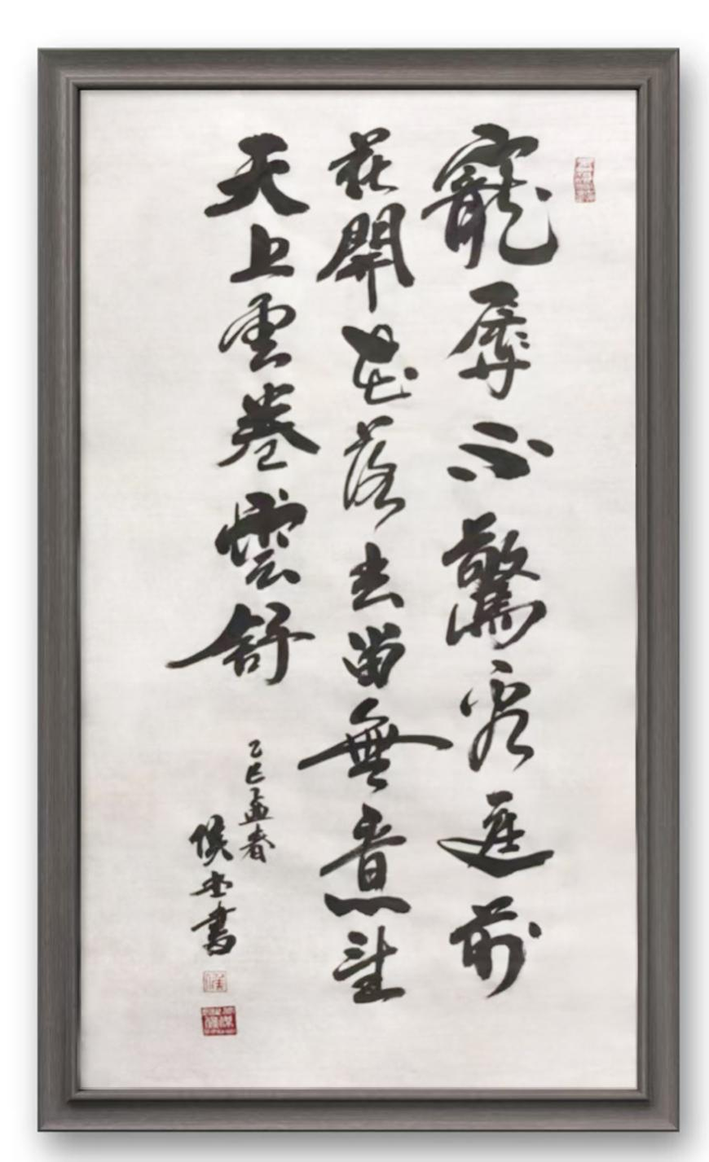 寵辱不驚看庭前
花開花落去留無意望
天上雲卷雲舒
乙巳孟春
侯書